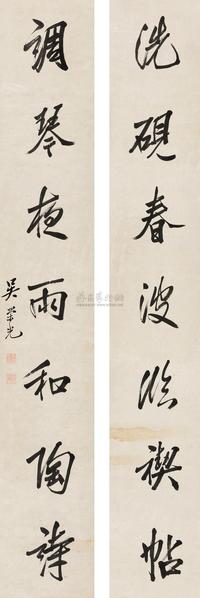 洗硯春波臨禊帖
調琴夜雨和陶詩
吳榮光